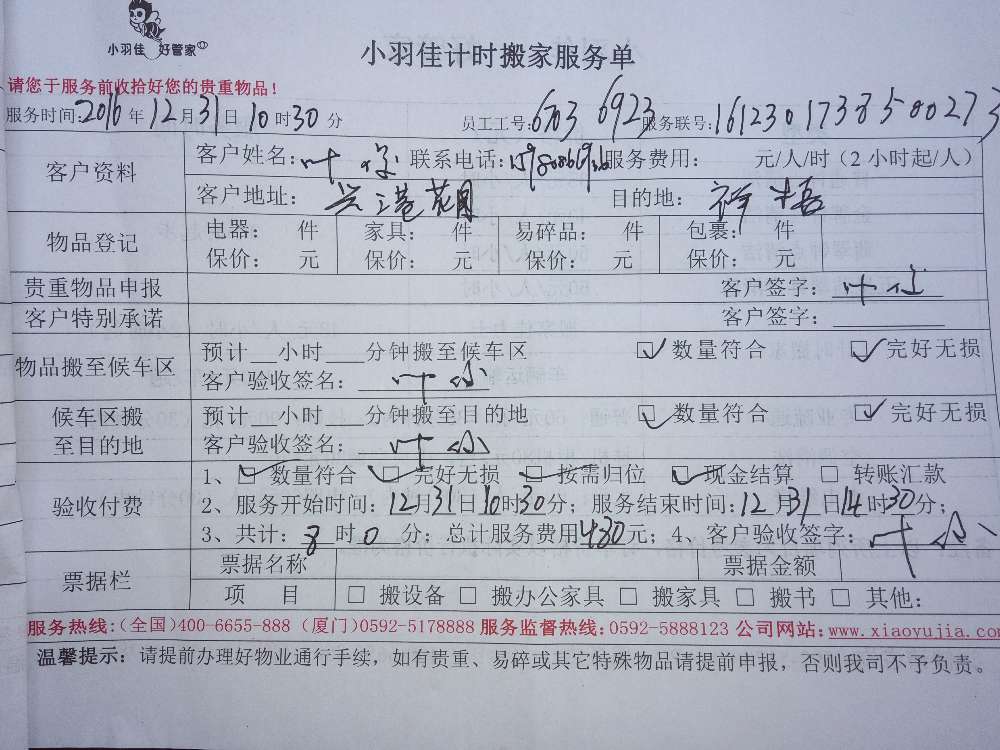 小羽佳 好管家
小羽佳计时搬家服务单
请您于服务前收拾好您的贵重物品!
服务时间:2016年12月31日10时30分 员工工号:6703 6923 服务联号:161230173385800273
客户资料 客户姓名: 叶 联系电话: 服务费用: 元/人/时(2小时起/人)
客户地址: 兴港花园 目的地:
物品登记 电器: 件 家具: 件 易碎品: 件 包裹: 件
保价: 元 保价: 元 保价: 元 保价: 元
贵重物品申报 客户签字: 叶
客户特别承诺 客户签字:
物品搬至候车区 预计 小时 分钟搬至候车区 ☑ 数量符合 ☑ 完好无损
客户验收签名: 叶
候车区搬至目的地 预计 小时 分钟搬至目的地 ☑ 数量符合 ☑ 完好无损
客户验收签名: 叶
验收付费 1、☑ 数量符合 ☑ 完好无损 ☑ 按需归位 ☑ 现金结算 □ 转账汇款
2、服务开始时间:12月31日10时30分; 服务结束时间:12月31日14时30分;
3、共计: 8时0分; 总计服务费用430元; 4、客户验收签字: 叶
票据栏 票据名称 票据金额
项 目 □ 搬设备 □ 搬办公家具 □ 搬家具 □ 搬书 □ 其他:
服务热线:(全国)400-6655-888 (厦门)0592-5178888 服务监督热线:0592-5888123 公司网站:www.xiaoyujia.com
温馨提示: 请提前办理好物业通行手续, 如有贵重、易碎或其它特殊物品请提前申报, 否则我司不予负责。